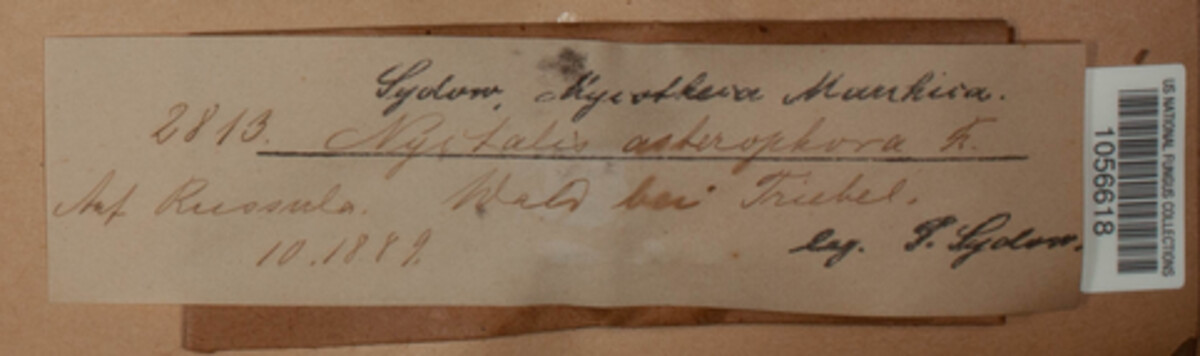 Sydow, Mycotheca Marchica.
2813. Nyctalis asterophora Fr.
Auf Russula. Wald bei Triebel.
10.1889.
leg. P. Sydow.
US NATIONAL FUNGUS COLLECTIONS
1056618